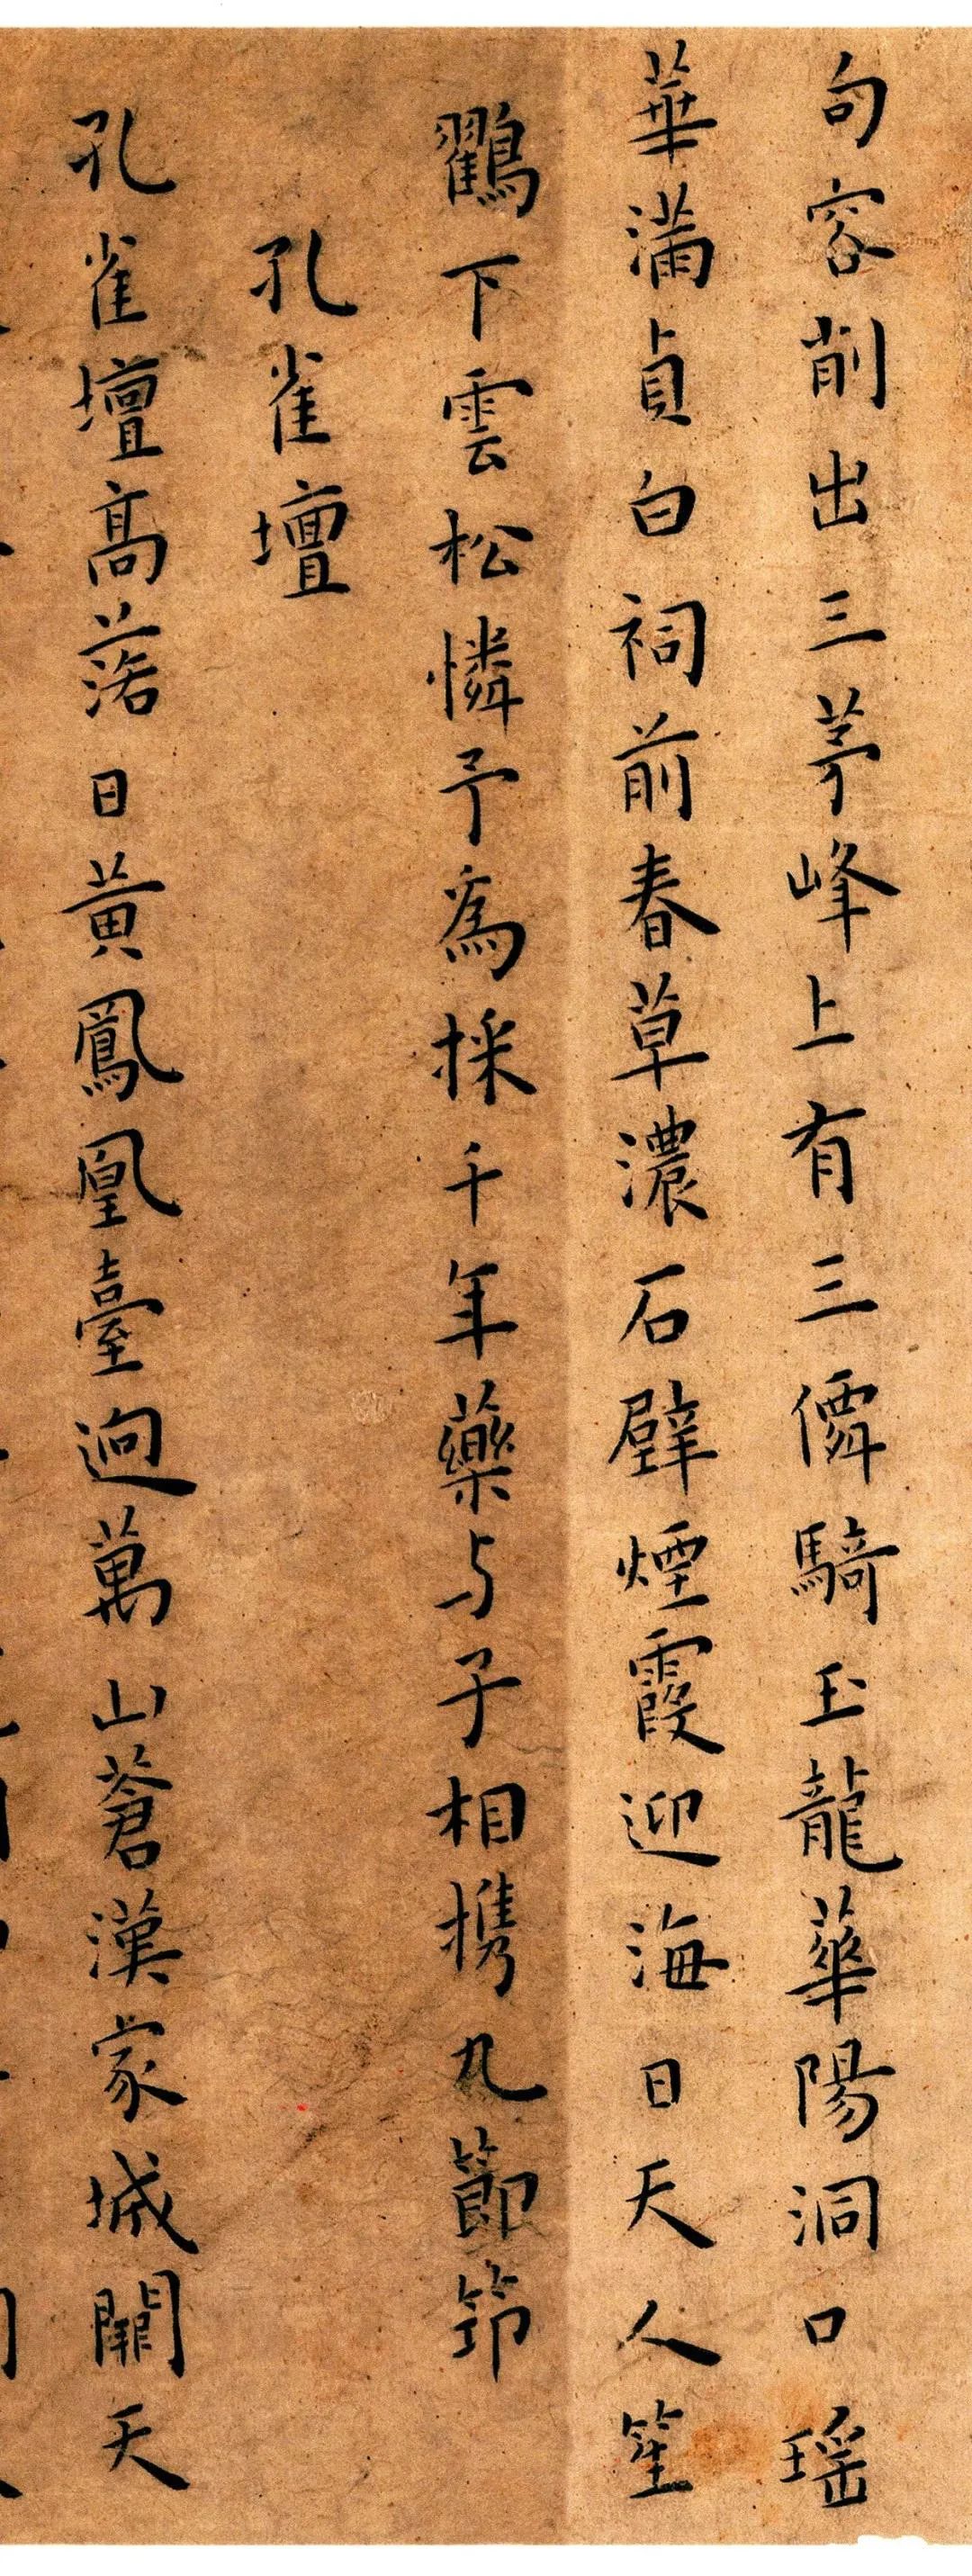 句容削出三茅峰上有三僊騎玉龍華陽洞口瑶
華滿貞白祠前春草濃石壁煙霞迎海日天人笙
鸛下雲松憐予為採千年藥与子相携九節筇
孔雀壇
孔雀壇高落日黄鳳凰臺迥萬山蒼漢家城闕天